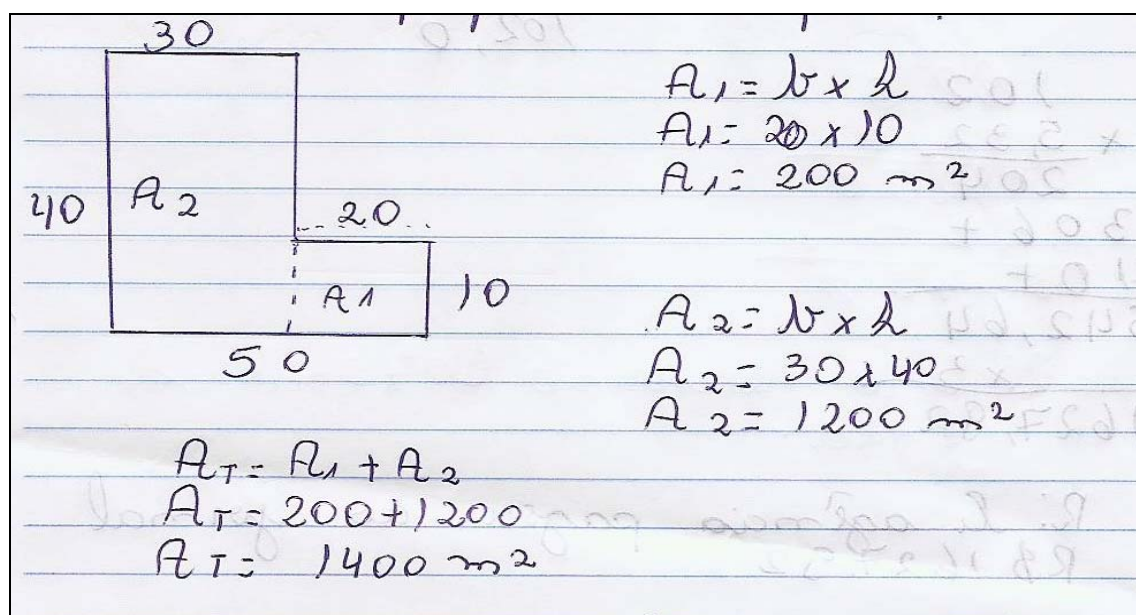 30
40
A2
20
A1
10
50
A1 = b x h
A1 = 20 x 10
A1 = 200 m²
A2 = b x h
A2 = 30 x 40
A2 = 1200 m²
AT = A1 + A2
AT = 200 + 1200
AT = 1400 m²